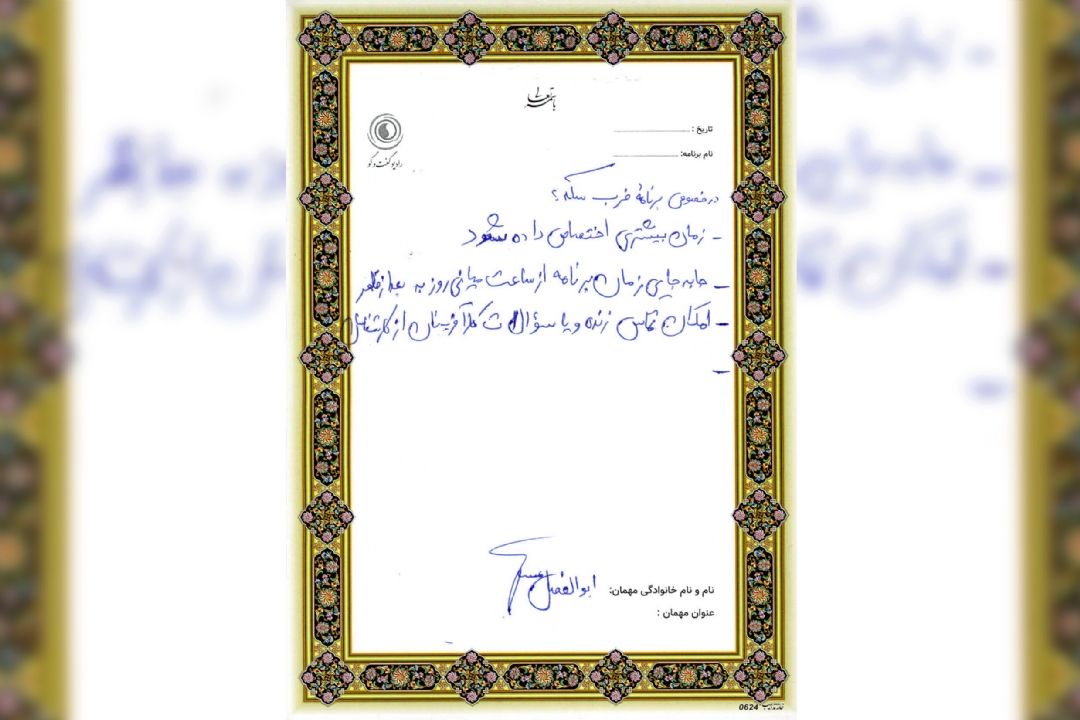 باسمه تعالی
تاریخ :
رادیو گفت و گو
نام برنامه:
در خصوص برنامهٔ ضرب سکه ؟
ـ زمان بیشتری اختصاص داده شود
ـ جابه جایی زمان برنامه از ساعت میانی روز به بعد از ظهر
ـ امکان تماس زنده و یا سؤالات کارآفرینان از کارشناس
ـ
نام و نام خانوادگی مهمان: ابوالفضل
عنوان مهمان :
0624